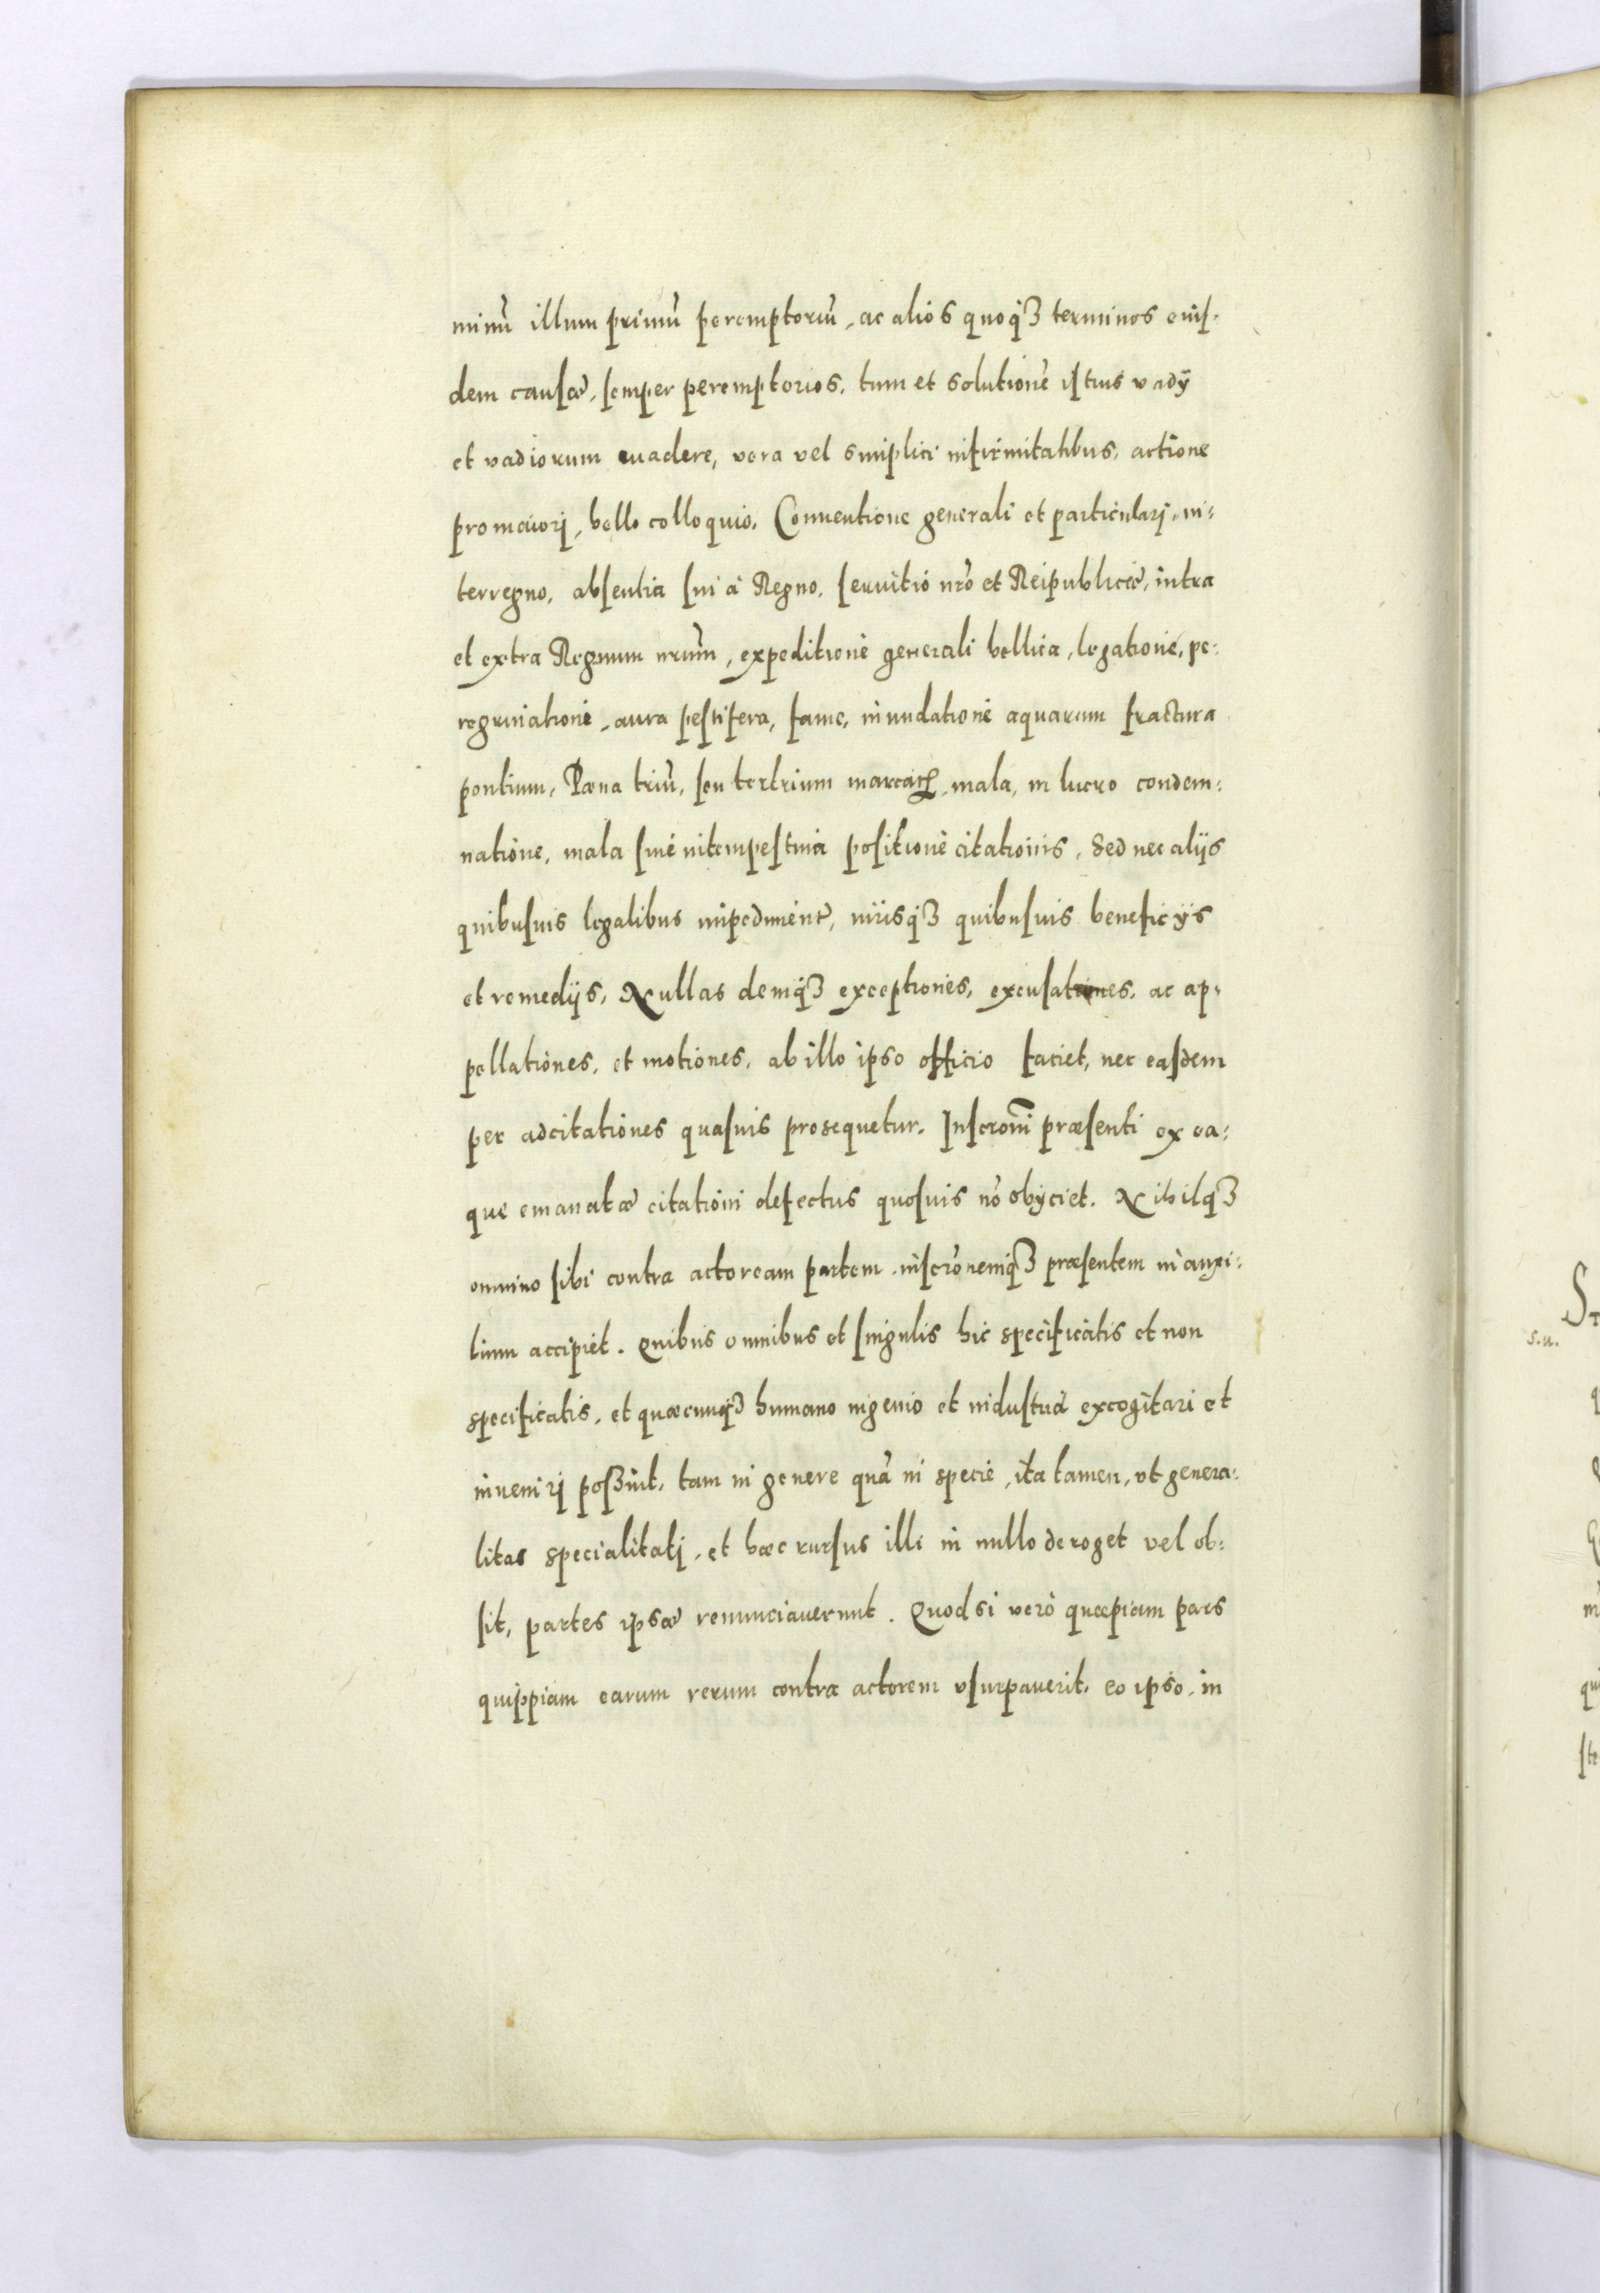 minū illum primū peremptoriū, ac alios quoqꝫ terminos euis-
dem causæ, semper peremptorios, tum et solutionē istius vadÿ
et vadiorum euadere, vera vel simplici infirmitatibus, actione
pro maiori, bello colloquio, Conuentione generali et particulari, in-
terregno, absentia sui à Regno, seruitio nr̄o et Reipublicæ, intra
et extra Regnum nr̄um, expeditione generali bellica, legatione, pe-
regrinatione, aura pestifera, fame, inundatione aquarum fractura
pontium, Pæna triū, seu tertrium marcaꝝ, mala, in lucro condem-
natione, mala siue intempestiua positione citationis, Sed nec alijs
quibusuis legalibus impedimentꝭ, iurisqꝫ quibusuis beneficÿs
et remedijs, Nullas deniqꝫ exceptiones, excusationes, ac ap-
pellationes, et motiones, ab illo ipso officio faciet, nec easdem
per adcitationes quasuis prosequetur. Inscrōni præsenti ex ea-
que emanatæ citationi defectus quosuis nō obÿciet. Nihilqꝫ
omnino sibi contra actoream partem, inscrōnemqꝫ præsentem in auxi-
lium accipiet. Quibus omnibus et singulis hic specificatis et non
specificatis, et quæcunqꝫ humano ingenio et industria excogitari et
inueniri possint, tam in genere quā in specie, ita tamen, vt genera-
litas specialitati, et hæc rursus illi in nullo deroget vel ob-
sit, partes ipsæ renunciauerunt. Quod si verò quæpiam pars
quippiam earum rerum contra actorem vsurpauerit, eo ipso, in